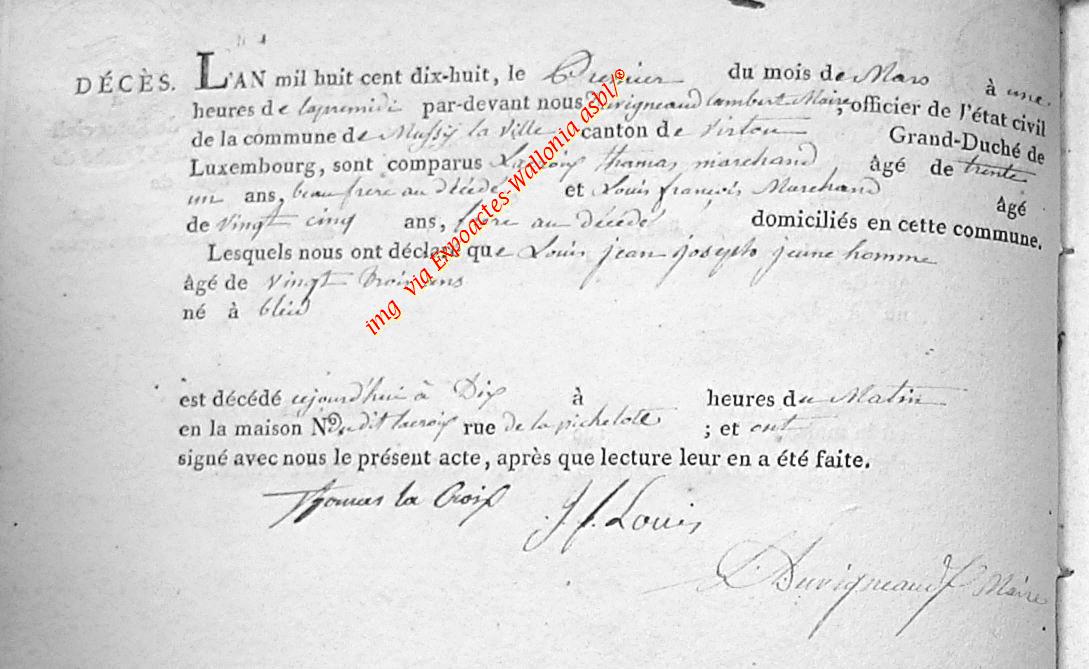 DÉCÈS. L'AN mil huit cent dix-huit, le Premier du mois de Mars à une
heures de lapremidi par-devant nous Duvigneaud Lambert Maire, officier de l'état civil
de la commune de Mussy la ville canton de Virton Grand-Duché de
Luxembourg, sont comparus Lacroix thomas marchand âgé de trente
un ans, beau frere au décédé et Louis françois Marchand âgé
de vingt cinq ans, frere au décédé domiciliés en cette commune.
Lesquels nous ont déclaré que Louis jean joseph jeune homme
âgé de vingt trois ans
né à bleid
est décédé cejourd'hui à Dix à heures du Matin
en la maison N° du dit lacroix rue de la pichelote ; et ont
signé avec nous le présent acte, après que lecture leur en a été faite.
Thomas la Croix
J f. Louis
L Duvigneaud Maire
img via Expoactes-Wallonia asbl/©